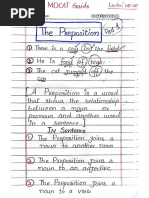 MDCAT Guide
The Preposition
Part 1
① There is a cow in the field.
② He is fond of
③ The cat jumped off the
A Preposition is a word
that shows the relationship
between a noun or
pronoun and another word
in a sentence.
In Sentence
① The Preposition joins a
noun to another noun
② The Preposition joins a
noun to an adjective
③ The Preposition joins a
noun to a verb